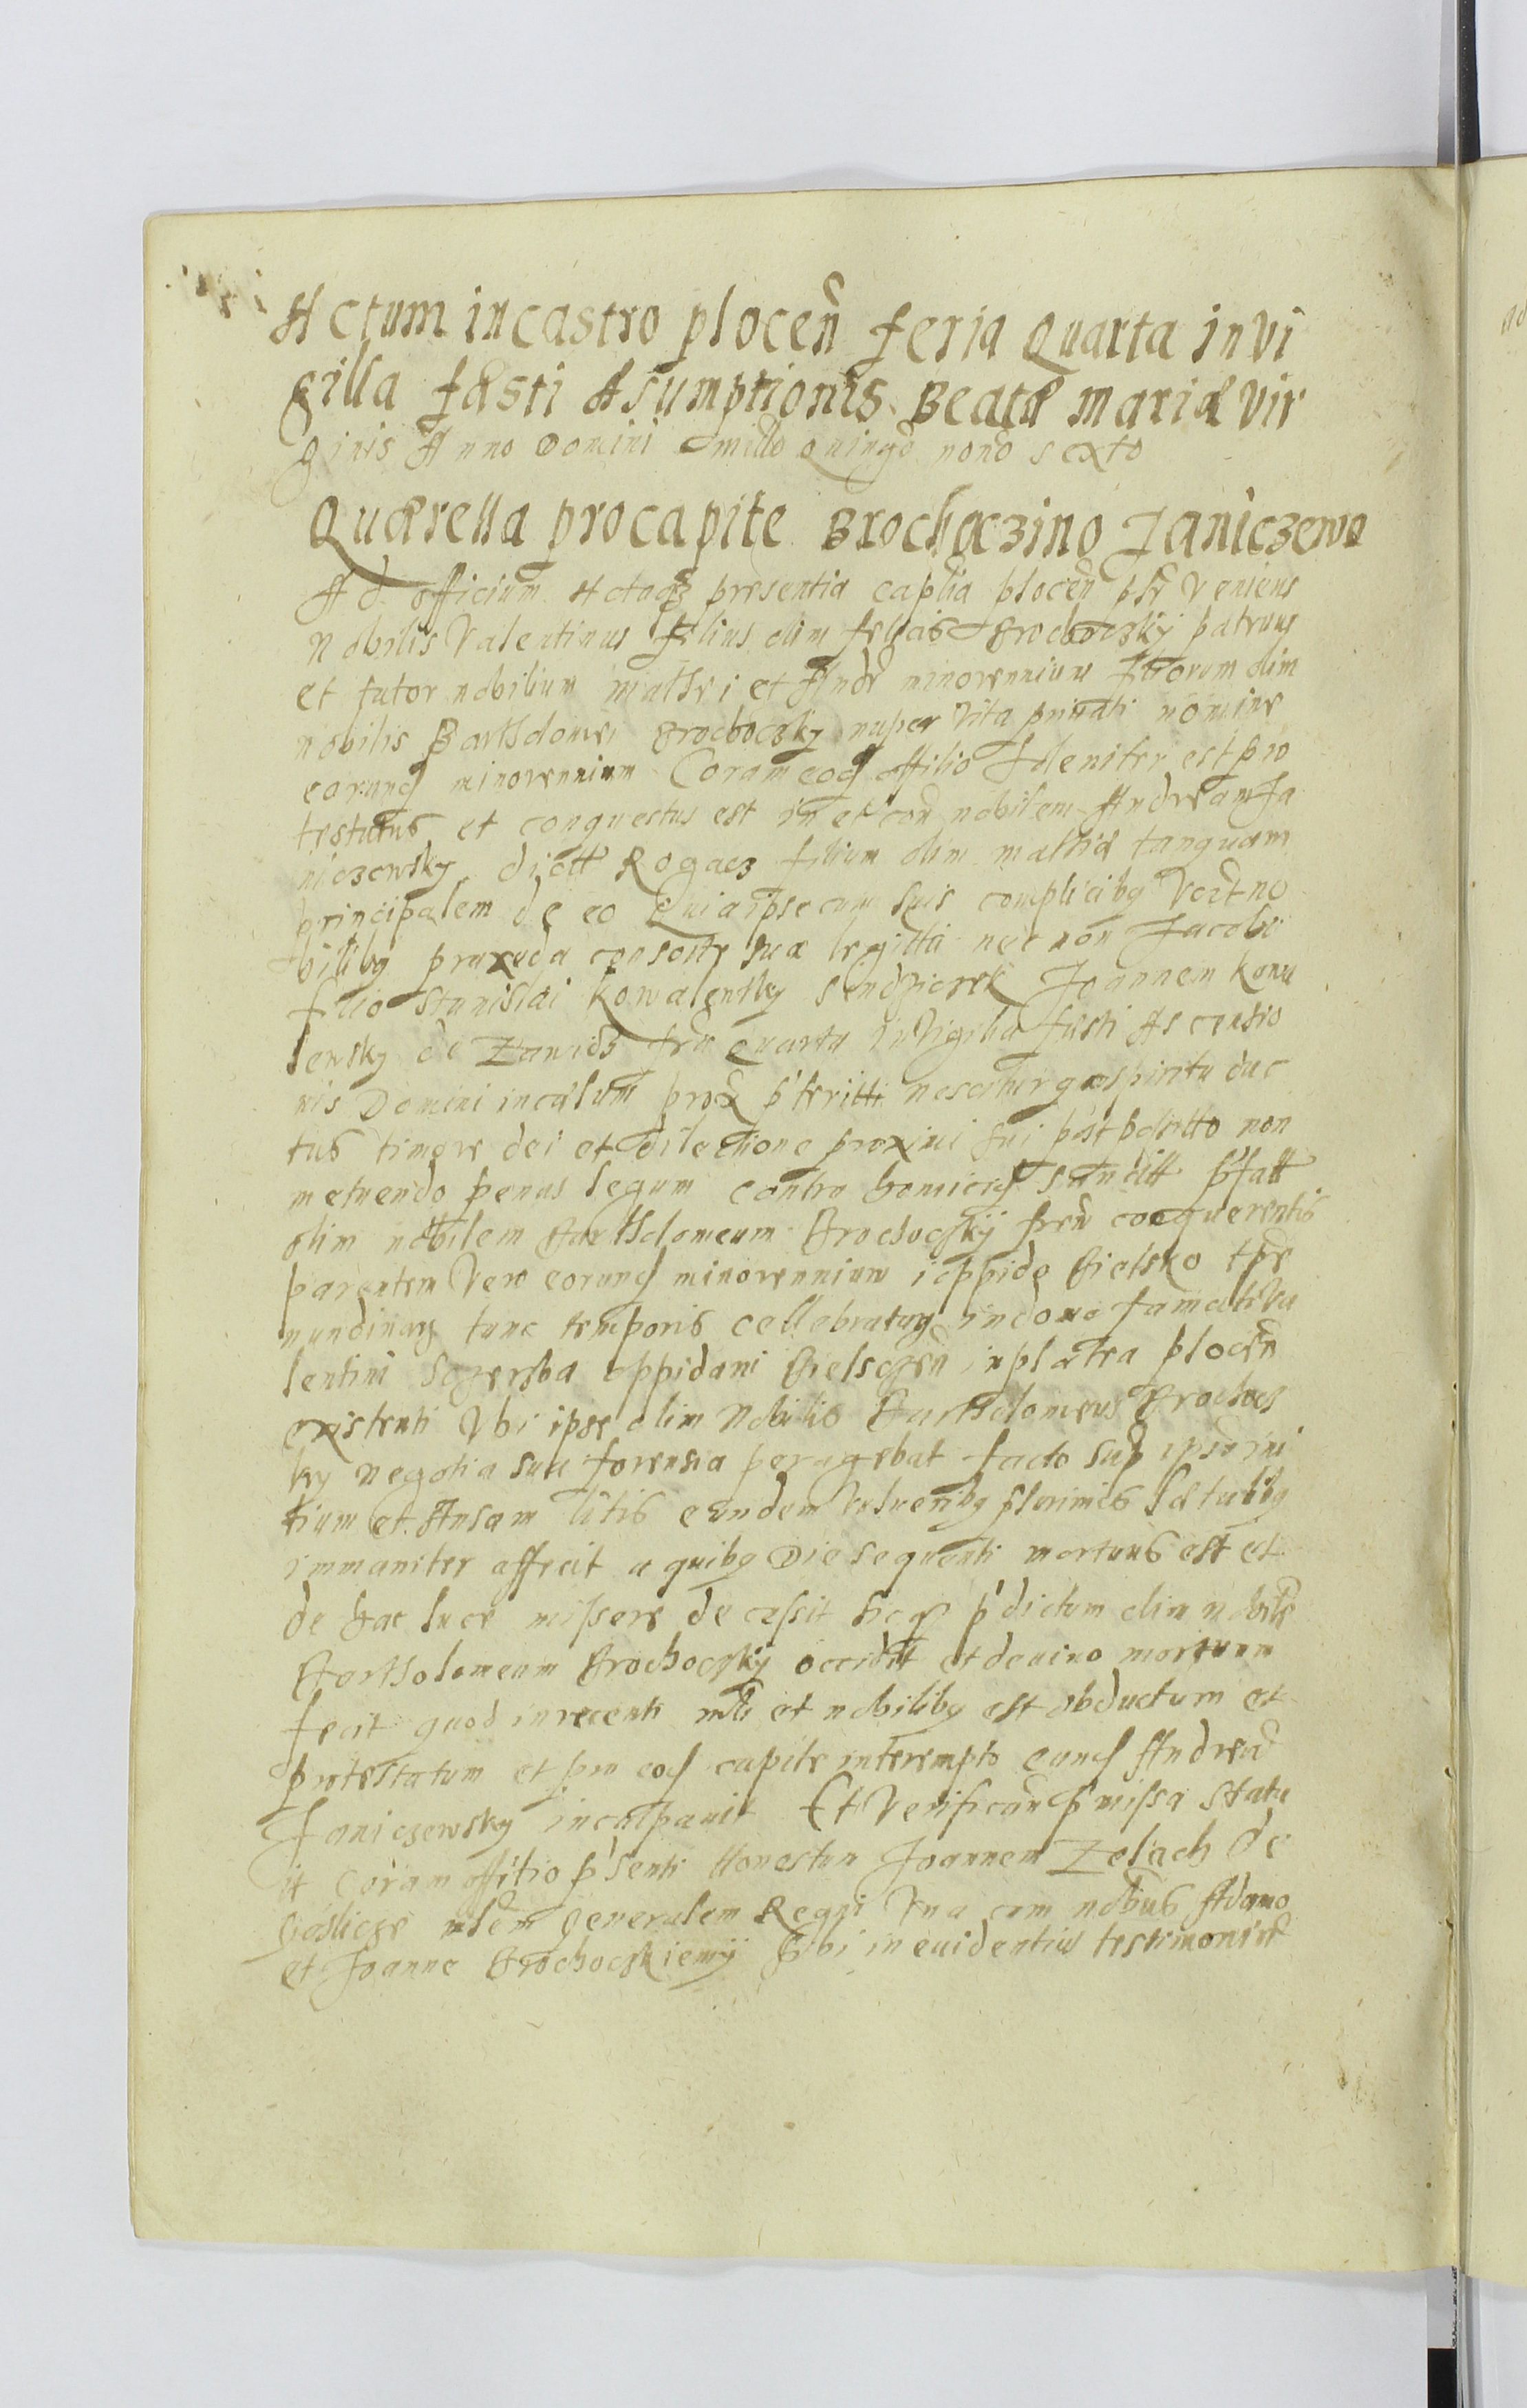 Actum in castro plocen̄ feria Quarta in Vi
gilia fæsti Asumptionis Beatæ Mariæ Vir
ginis Anno Domini millo Quingo nono sexto
Quærella pro capite Brochoczino Janiczewo
Ad officium Actaqȝ presentia caplia plocen̄ psr̄ Veniens
Nobilis Valentinus filius olim felicis Brochoczkÿ patruus
et tutor nobilium Mathei et Andr minorennium filiorum olim
nobilis Bartholomei Brochoczky nuper Vita priuati nomine
eorund minorennium Coram eod offitio soleniter est pro
testatus et conquestus est in et con̄ nobilem Andream Ja
niczewsky dictt Rogacz filium olim Mathiæ tanquam
principalem de eo Quia ipse cum suis complicibȝ Vozt no
bilibȝ praxeda consorte sua legitta nec non Jacobi
filio Stanislai Kowalewsky Joannem Konu
lewsky de Zawidz fria quarta in Vigilia fæsti Ascensio
nis Domini in cælum prox p̄teritti nescitur quo spiritu duc
tus timore dei et dilectione proximi sui postpositto non
metuendo penas legum contra homicid sancitt p̄fatt
olim nobilem Bartholomeum Brochoczkÿ frēm conquerentis
parentem Vero eorund minorennium i oppido Bielsko tpre
nundinarȝ tunc temporis cellebratarȝ in domo famati Va
lentini Sczerzba oppidani Bielsczen̄ in platea plocen̄
existenti Vbi ipse olim Nobilis Bartholomeus Brochocz
ky negotia sua forensia peragebat facto sup ipsum ini
tium et Ansam litis eundem Vulneribȝ plurimis lætalibȝ
immaniter affecit a quibȝ Die sequenti mortuus est et
de hac luce missere decessit sicqȝ p̄dictum olim nobile
Bartholomeum Brochoczkÿ occidit et de uiuo mortuum
fecit quod in recenti mli et nobilibȝ est obductum et
protestatum et pro eod capite interempto eund Andreā
Janiczewsky inculpauit Et Verifican p̄missa Statu
it coram offitio p̄senti Honestum Joannem Zelach de
Goslicze mlēm generalem Regni Vna cum nobus Adamo
et Joanne Brochoczkiemÿ sibi in euidentius testimoniū